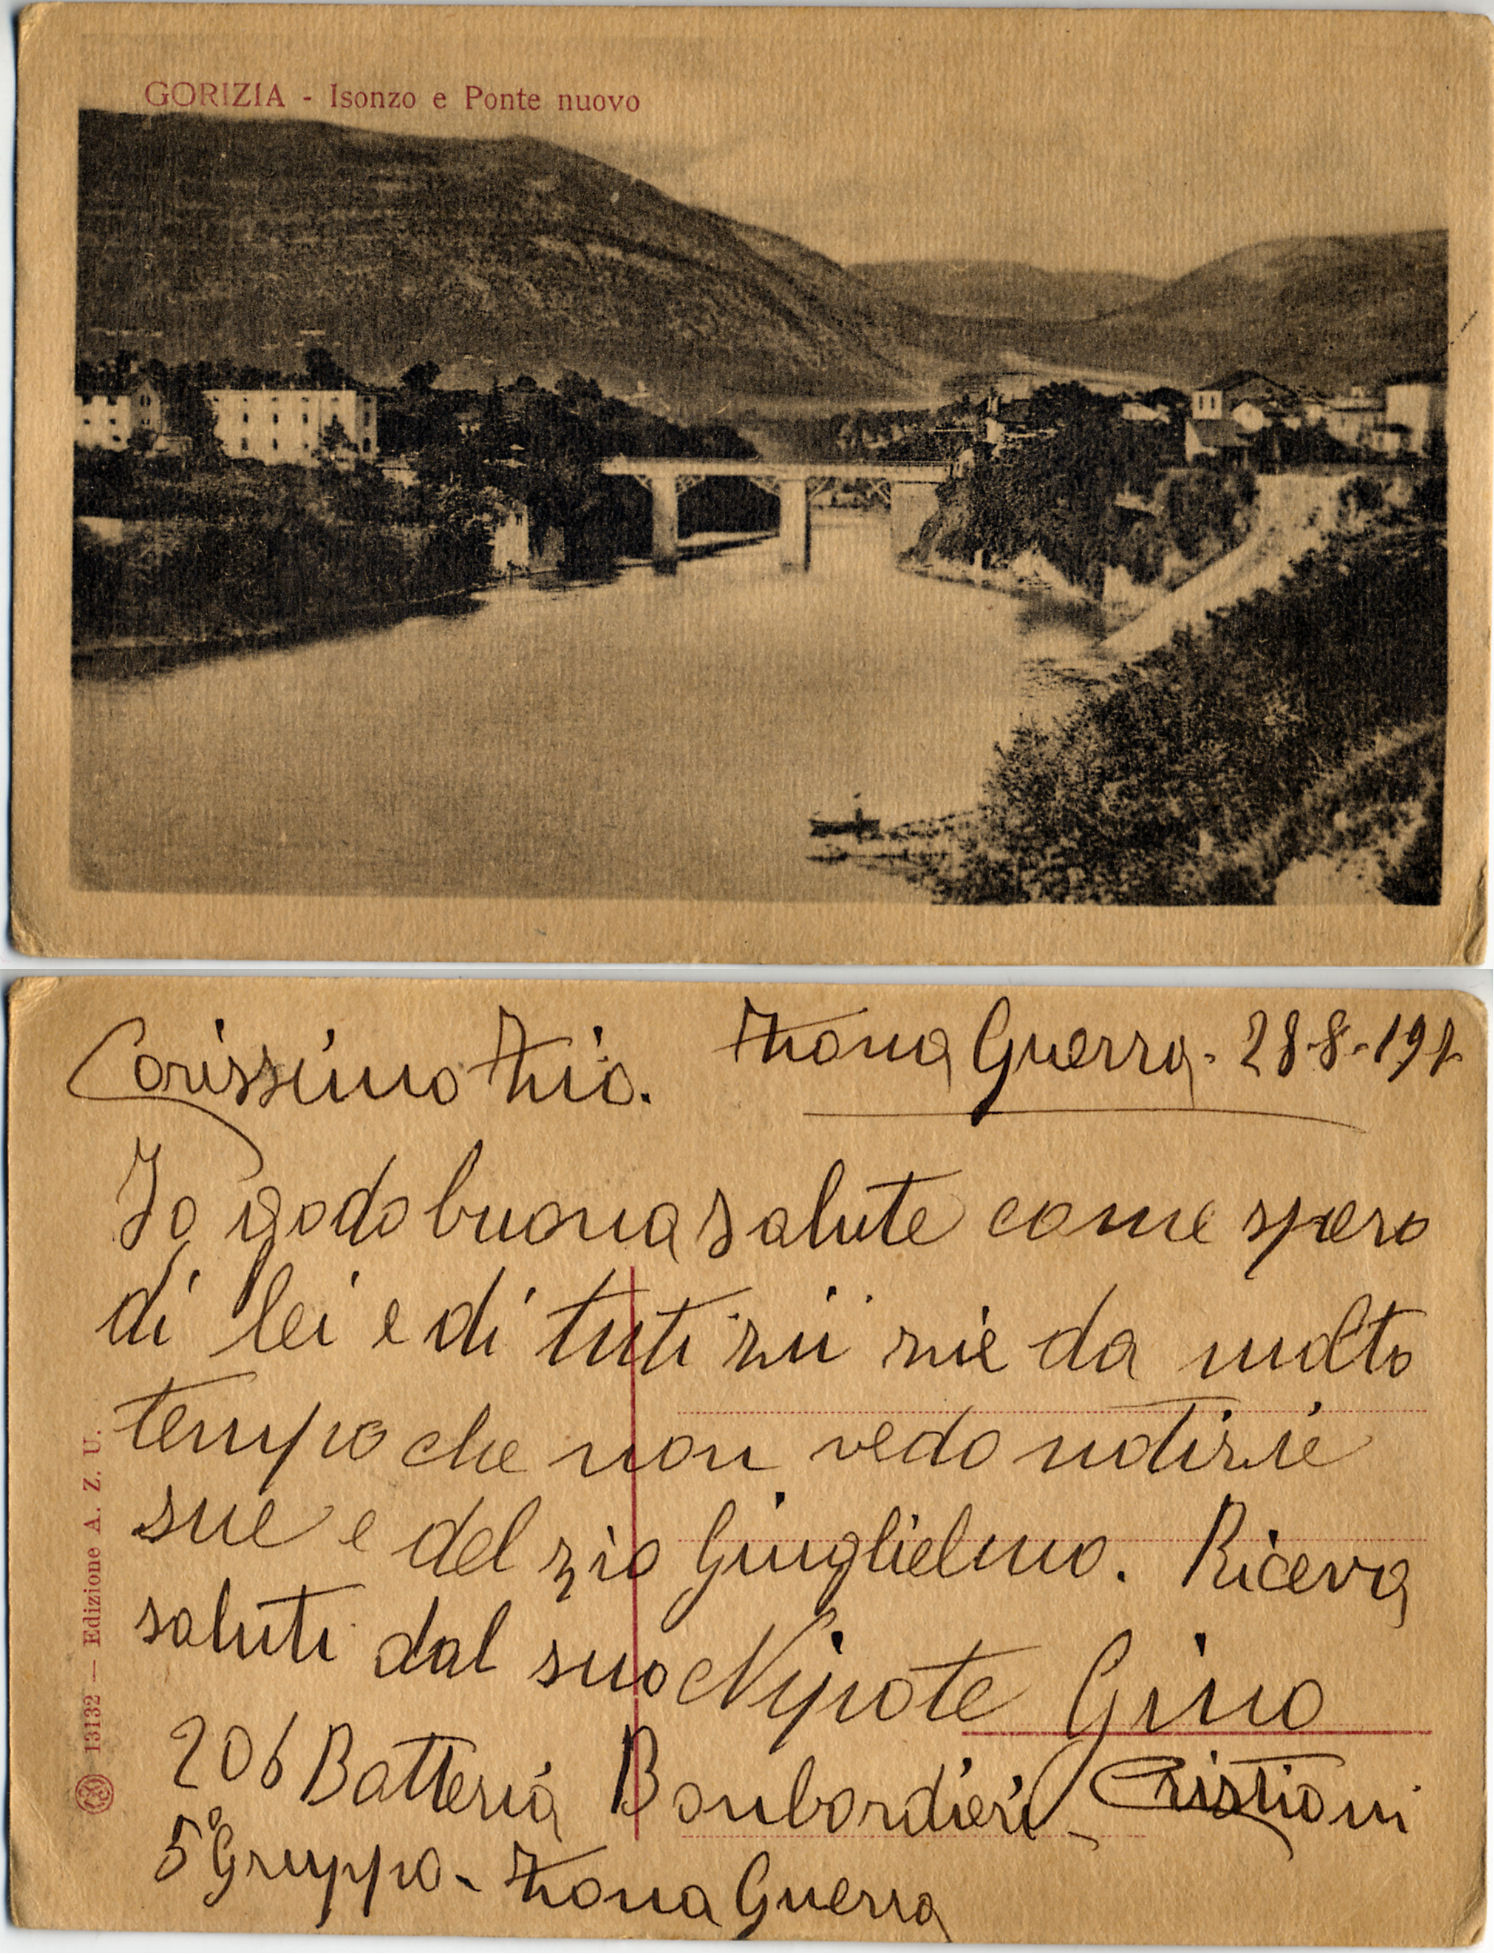 GORIZIA - Isonzo e Ponte nuovo
Carissimo Zio. Zona Guerra - 28-8-191
Io godo buona salute come spero
di lei e di tuti zii zie da molto
tempo che non vedo notizie
sue e del zio Giuglielmo. Riceva
saluti dal suo Nipote Gino
206 Batteria Bonbordieri - Cristiani
5º Gruppo - Zona Guerra
13132 — Edizione A. Z. U.